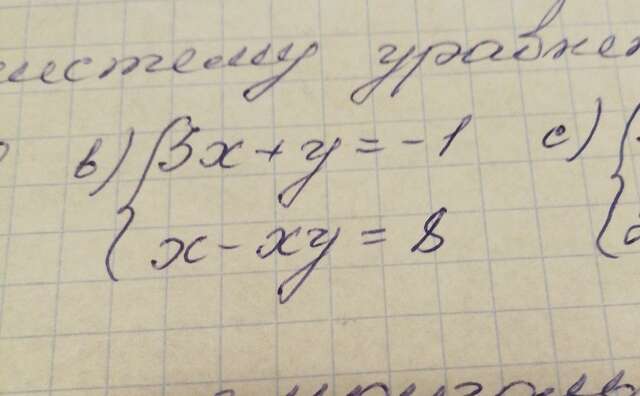 истему уравнен
в) { 3x + y = -1 с) {
x - xy = 8